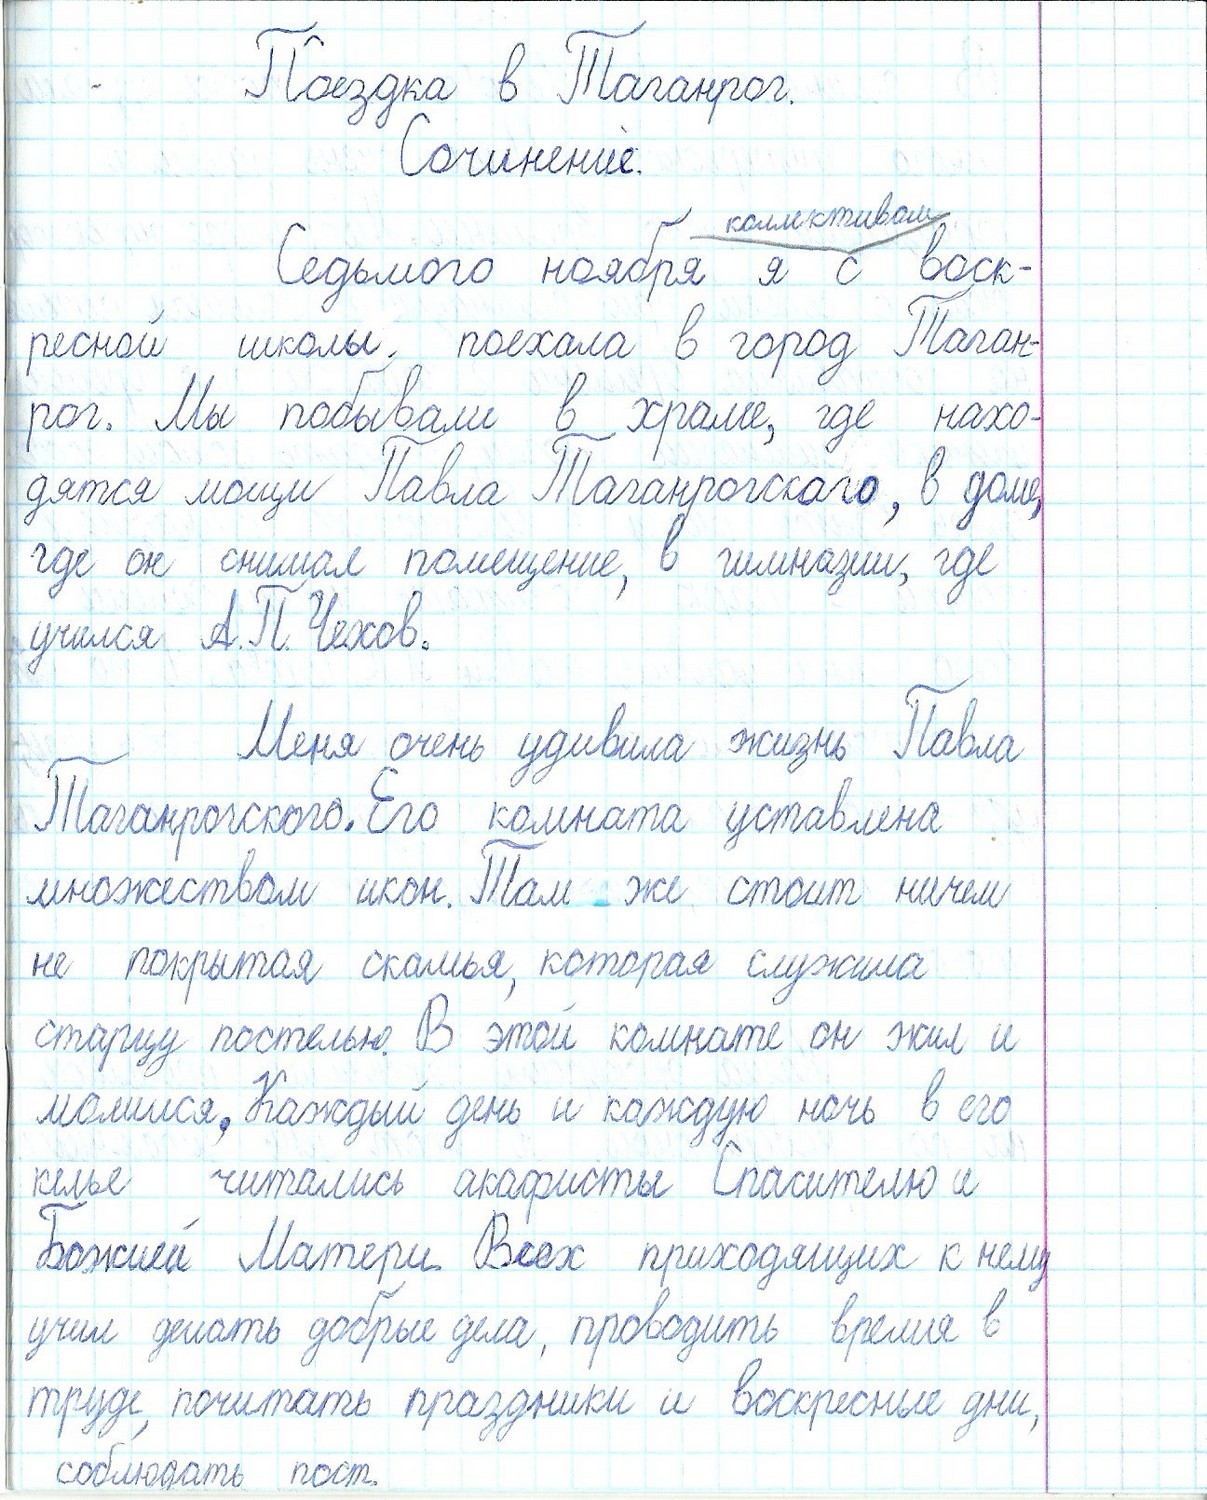 Поездка в Таганрог.
Сочинение.
коллективом
Седьмого ноября я с воск-
ресной школы. поехала в город Таган-
рог. Мы побывали в храме, где нахо-
дятся мощи Павла Таганрогскаго, в доме,
где он снимал помещение, в гимназии, где
учился А.П. Чехов.
Меня очень удивила жизнь Павла
Таганрогского. Его комната уставлена
множеством икон. Там же стоит ничем
не покрытая скамья, которая служила
старцу постелью. В этой комнате он жил и
молился. Каждый день и каждую ночь в его
келье читались акафисты Спасителю и
Божией Матери. Всех приходящих к нему
учил делать добрые дела, проводить время в
труде, почитать праздники и воскресные дни,
соблюдать пост.